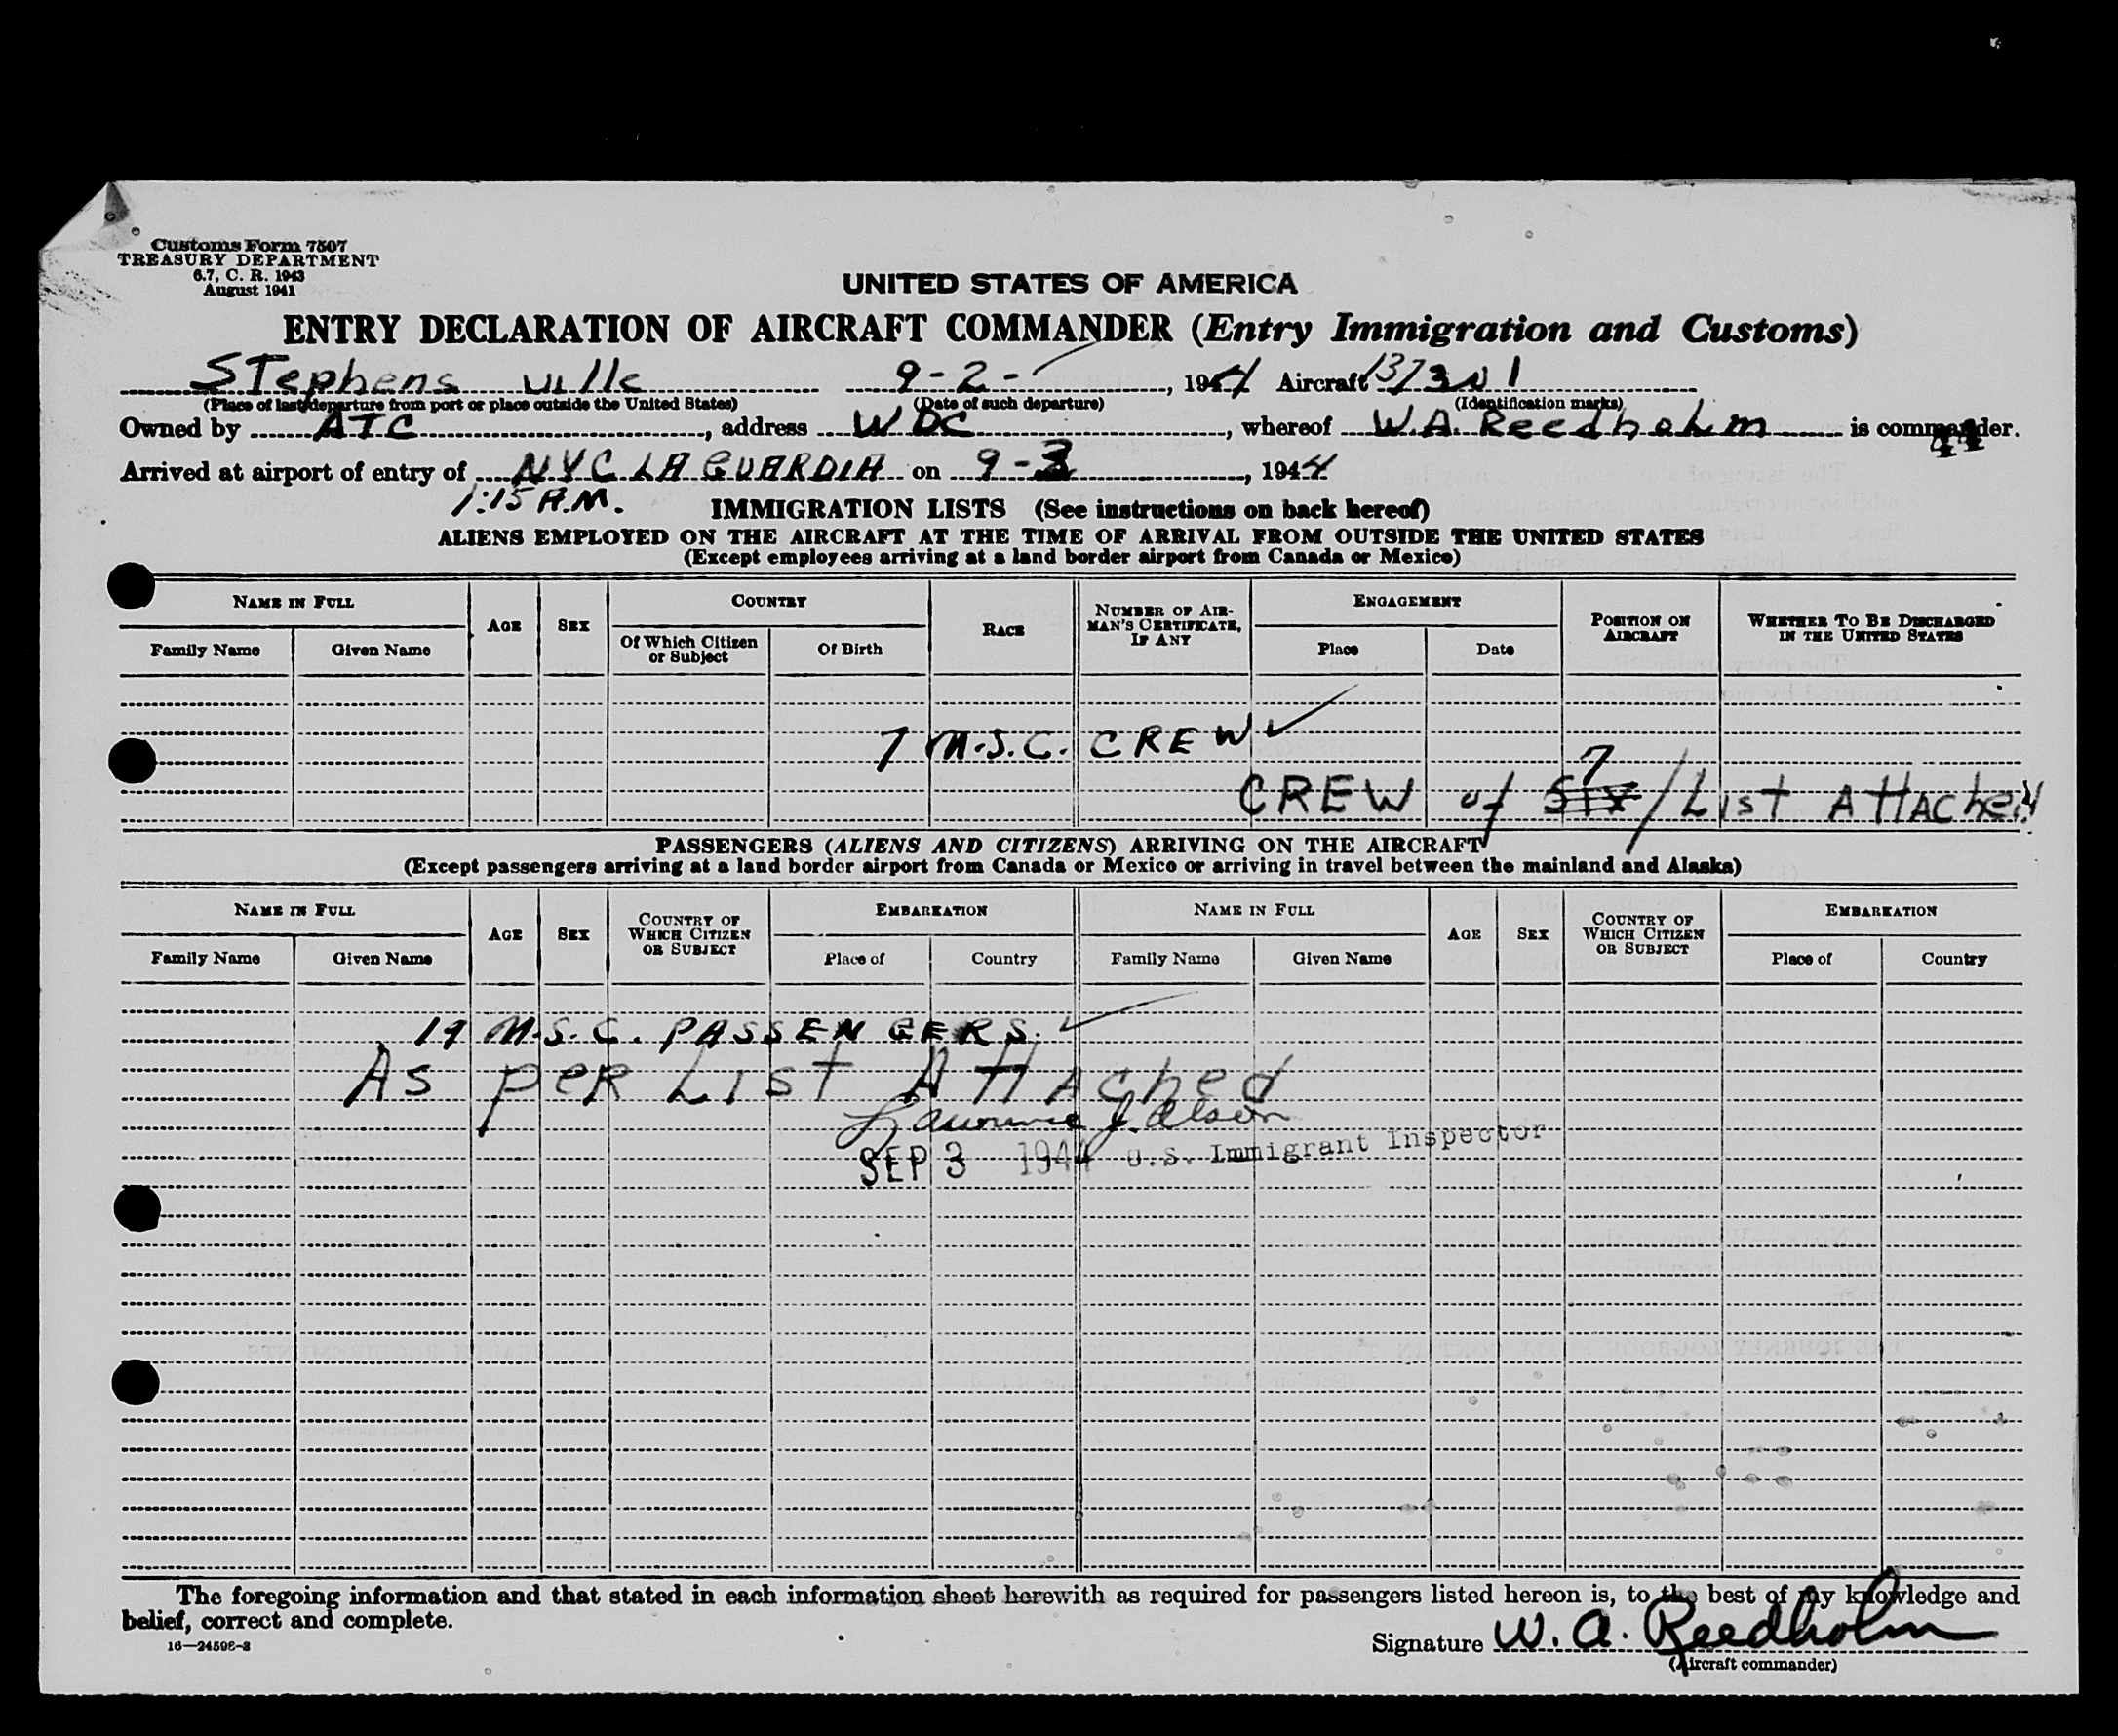 Customs Form 7507
TREASURY DEPARTMENT
6.7, C. R. 1943
August 1941
UNITED STATES OF AMERICA
ENTRY DECLARATION OF AIRCRAFT COMMANDER (Entry Immigration and Customs)
STephens ville 9-2- , 1944 Aircraft
(Place of last departure from port or place outside the United States) (Date of such departure) (Identification marks)
Owned by ATC, address WDC, whereof W.A. Reedholm is commander.
44
Arrived at airport of entry of NYC LA GUARDIA on 9-3, 1944
1:15 A.M. IMMIGRATION LISTS (See instructions on back hereof)
ALIENS EMPLOYED ON THE AIRCRAFT AT THE TIME OF ARRIVAL FROM OUTSIDE THE UNITED STATES
(Except employees arriving at a land border airport from Canada or Mexico)
NAME IN FULL AGE SEX COUNTRY RACE NUMBER OF AIRMAN'S CERTIFICATE, IF ANY ENGAGEMENT POSITION ON AIRCRAFT WHETHER TO BE DISCHARGED IN THE UNITED STATES
Family Name Given Name Of Which Citizen or Subject Of Birth Place Date
7 M.S.C. CREW ✓
7
CREW of SIX / LIST ATTAChed
PASSENGERS (ALIENS AND CITIZENS) ARRIVING ON THE AIRCRAFT
(Except passengers arriving at a land border airport from Canada or Mexico or arriving in travel between the mainland and Alaska)
NAME IN FULL AGE SEX COUNTRY OF WHICH CITIZEN OR SUBJECT EMBARKATION NAME IN FULL AGE SEX COUNTRY OF WHICH CITIZEN OR SUBJECT EMBARKATION
Family Name Given Name Place of Country Family Name Given Name Place of Country
19 M.S.C. PASSENGERS. ✓
As per List Attached
Lawrence J. Olson
SEP 3 1944 U.S. Immigrant Inspector
The foregoing information and that stated in each information sheet herewith as required for passengers listed hereon is, to the best of my knowledge and
belief, correct and complete.
16—24598-2
Signature W. A. Reedholm
(Aircraft commander)